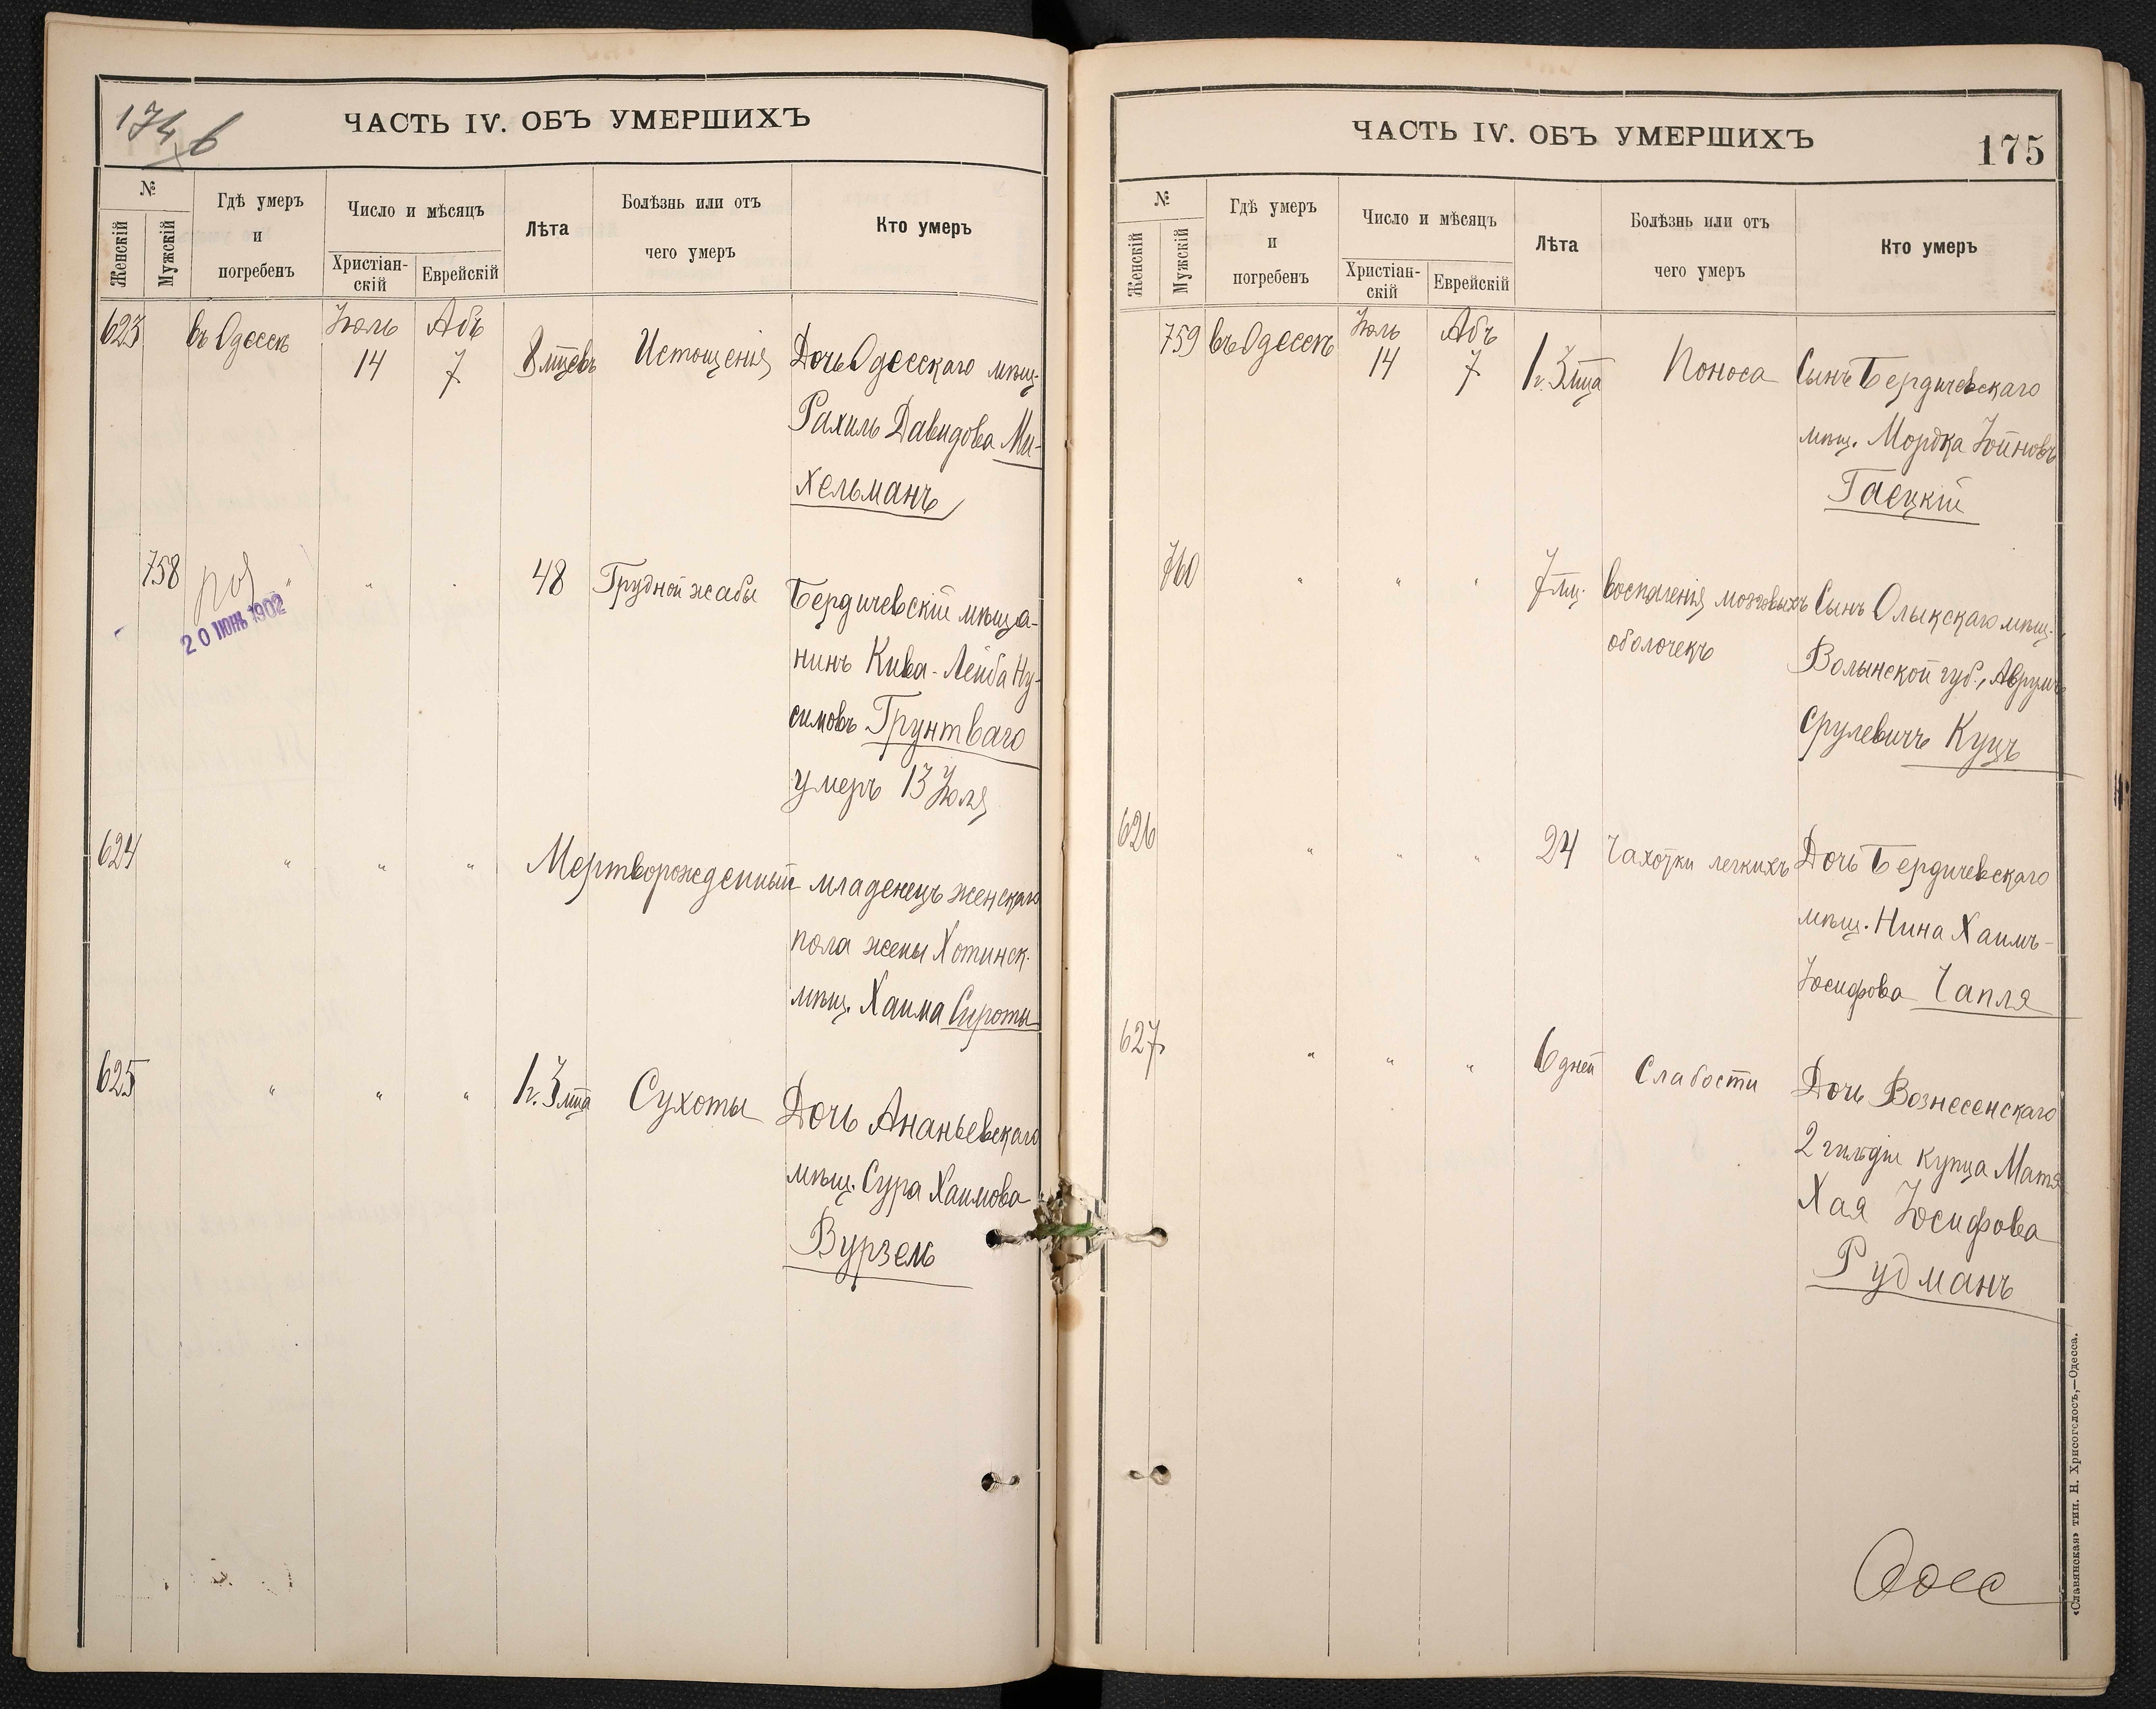 174 б
ЧАСТЬ IV. ОБЪ УМЕРШИХЪ
№
Женскій
Мужскій
Гдѣ умеръ
и
погребенъ
Число и мѣсяцъ
Христіан-
скій
Еврейскій
Лѣта
Болѣзнь или отъ
чего умеръ
Кто умеръ
623 въ Одессѣ Іюль Абъ
14 7 8 мцевъ Истощенія Дочь Одесскаго мѣщ.
Рахиль Давидова Ми-
хельманъ
758 " " " 48 Грудной жабы Бердичевскій мѣща-
20 ІЮН 1902
нинъ Кива-Лейба Ну-
симовъ Грунтваго
умеръ 13 Іюля
624 " " " Мертворожденный младенецъ женскаго
пола жены Хотинск.
мѣщ. Хаима Сироты
625 " " " 1 г. 3 мца Сухоты Дочь Ананьевскаго
мѣщ. Сура Хаимова
Вурзель
ЧАСТЬ IV. ОБЪ УМЕРШИХЪ
175
№
Женскій
Мужскій
Гдѣ умеръ
и
погребенъ
Число и мѣсяцъ
Христіан-
скій
Еврейскій
Лѣта
Болѣзнь или отъ
чего умеръ
Кто умеръ
759 въ Одессѣ Іюль Абъ
14 7 1 г. 3 мца Поноса Сынъ Бердичевскаго
мѣщ. Мордка Іойновъ
Гаецкій
760 " " " 7 мц. Воспаленія мозговыхъ Сынъ Олыкскаго мѣщ.
оболочекъ Волынской губ., Аврумъ
Срулевичъ Куцъ
626 " " " 24 Чахотки легкихъ Дочь Бердичевскаго
мѣщ. Нина Хаимъ-
Іосифова Чапля
627 " " " 6 дней Слабости Дочь Вознесенскаго
2 гильдіи купца Матя
Хая Іосифова
Рудманъ
«Славянская» тип. Н. Хрисогелосъ,—Одесса.